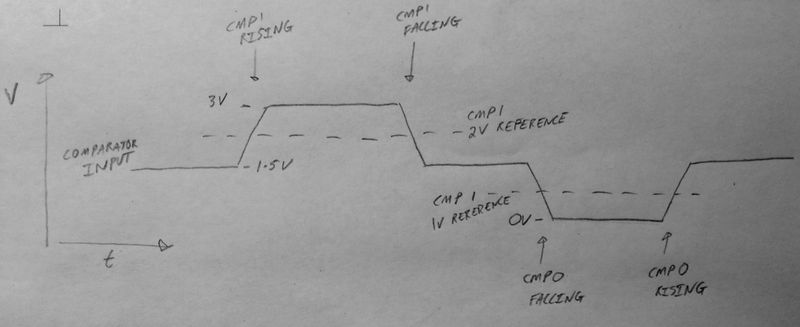 CMP1
RISING
CMP1
FALLING
V
3V
CMP1
2V REFERENCE
COMPARATOR
INPUT
1.5V
CMP 1
1V RERERENCE
0V
t
CMP0
FALLING
CMP0
RISING